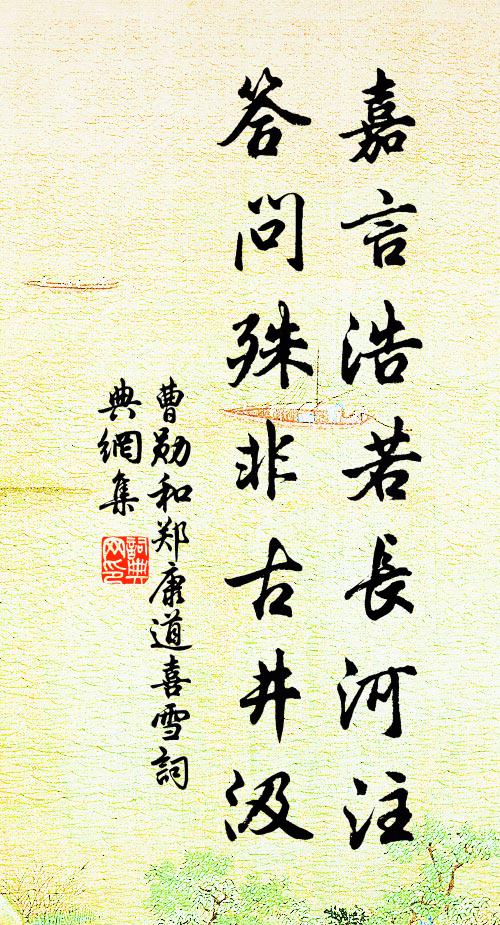 嘉言浩若長河注
答問殊非古井汲
曹勋和郑康道喜雪詞
典網集
詞典
网印